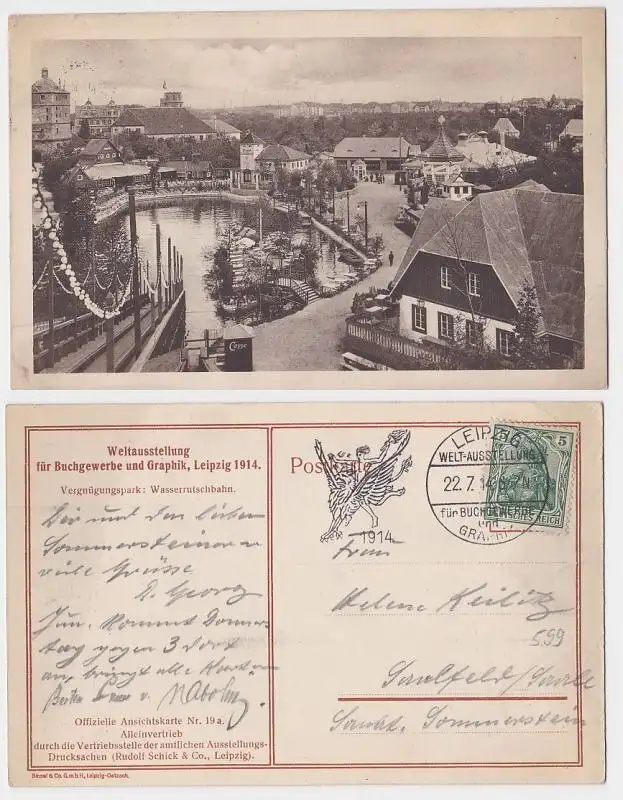 Casse
Weltausstellung
für Buchgewerbe und Graphik, Leipzig 1914.
Vergnügungspark: Wasserrutschbahn.
Dir und den lieben
Sommersteinern
viele Grüsse
D. Georg
Jun. kommt Donners
tag gegen 3 dort
an, bringt alle Karten
Offizielle Ansichtskarte Nr. 19 a.
Alleinvertrieb
durch die Vertriebsstelle der amtlichen Ausstellungs-
Drucksachen (Rudolf Schick & Co., Leipzig).
Brend'l & Co. G.m.b.H., Leipzig-Oetzsch.
Postkarte
1914
LEIPZIG
WELT-AUSSTELLUNG
22.7.14. N
für BUCHGEWERBE
und
GRAPHIK
5
REICH
Frau
Helene Keilitz
5,99
Saalfeld/Saale
Sanat. Sommerstein